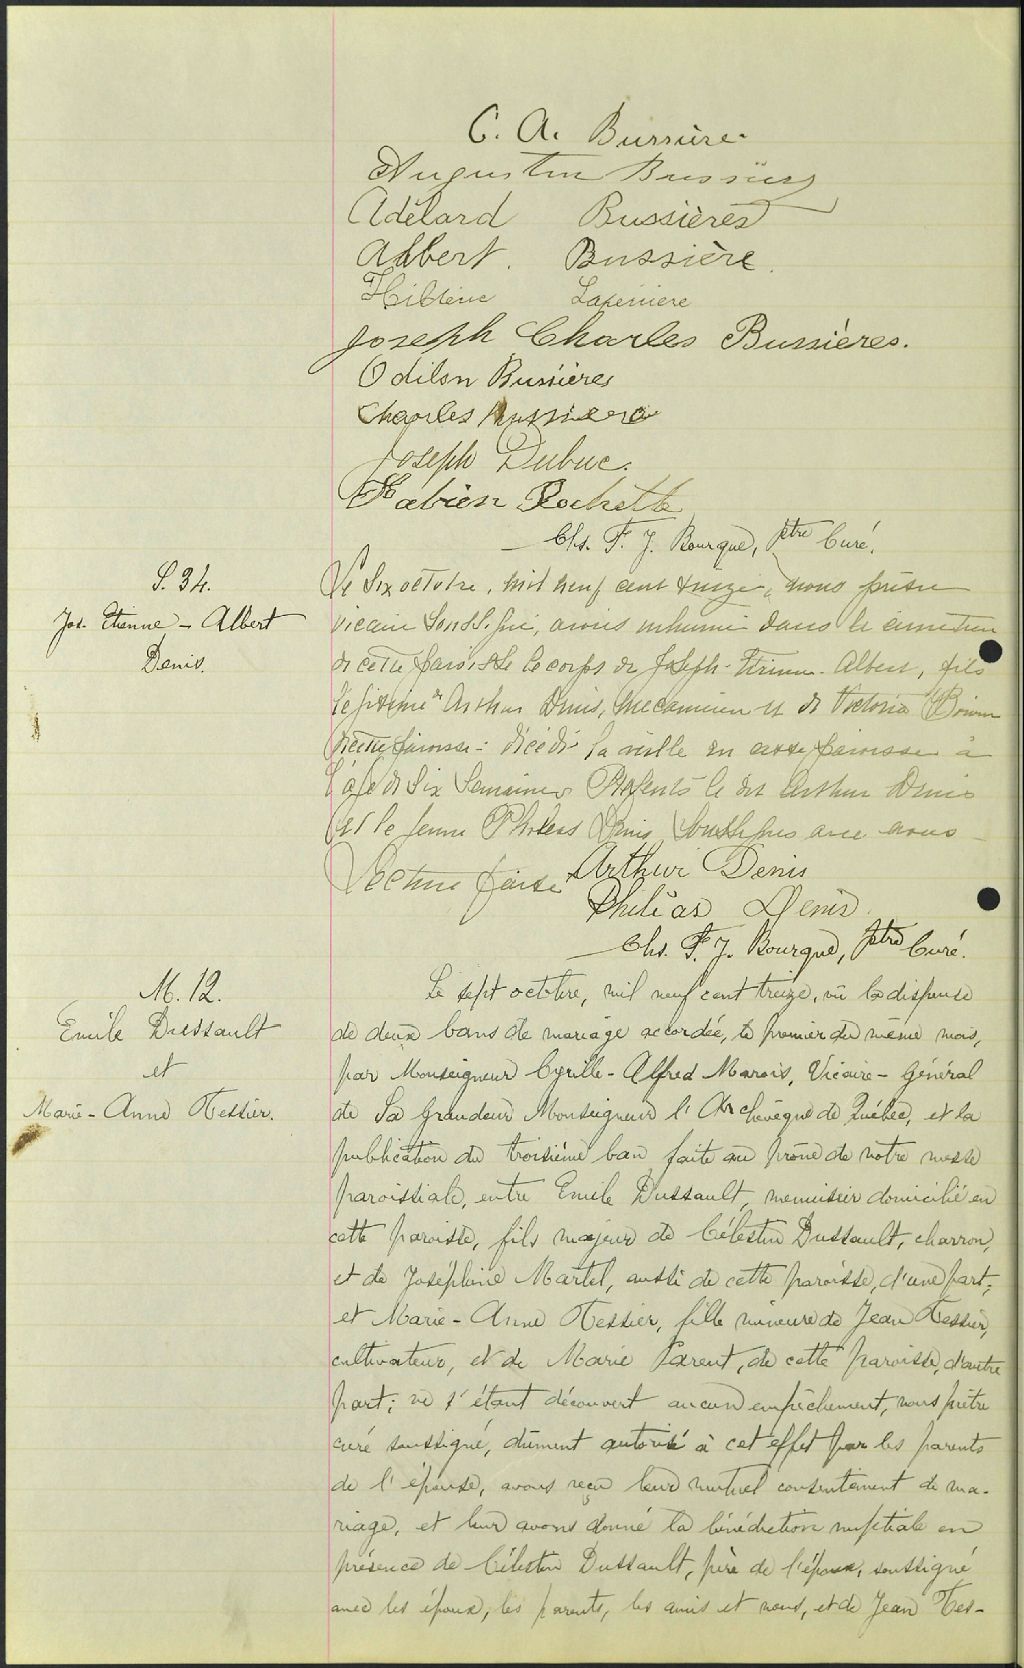 C. A. Bussière.
Augustin Bussières
Adélard Bussières
Albert. Bussière.
Laferriere
Joseph Charles Bussières.
Odilon Bussières
Charles Bussiere
Joseph Dubuc.
Fabien Rochette
Chs. F. J. Bourque, ptre Curé.
S. 34.
Jos. Etienne - Albert
Denis.
Le Six octobre, mil neuf cent treize, nous prêtre
vicaire Soussigné, avons inhumé dans le cimetière
de cette paroisse le corps de Joseph-Etienne-Albert, fils
légitime de Arthur Denis, mecanicien et de Victoria Boivin
de cette paroisse: décédé la veille en cette paroisse à
l'âge de Six Semaines Présents le dit Arthur Denis
et le jeune Philéas Denis, Soussignés avec nous
Lecture faite Arthur Denis
Philéas Denis
Chs. F. J. Bourque, ptre Curé.
M. 12.
Emile Dussault
et
Marie-Anne Tessier.
Le sept octobre, mil neuf cent treize, vû la dispense
de deux bans de mariage accordée, le premier du même mois,
par Monseigneur Cyrille-Alfred Marois, Vicaire-Général
de Sa Grandeur Monseigneur l'Archevêque de Québec, et la
publication du troisième ban faite au prône de notre messe
paroissiale, entre Emile Dussault, menuisier domicilié en
cette paroisse, fils majeur de Célestin Dussault, charron,
et de Joséphine Martel, aussi de cette paroisse, d'une part;
et Marie-Anne Tessier, fille mineure de Jean Tessier,
cultivateur, et de Marie Parent, de cette paroisse, d'autre
part; ne s'étant découvert aucun empêchement, nous prêtre
curé soussigné, dûment autorisé à cet effet par les parents
de l'épouse, avons reçu leur mutuel consentement de ma-
riage, et leur avons donné la bénédiction nuptiale en
présence de Célestin Dussault, père de l'époux, soussigné
avec les époux, les parents, les amis et nous, et de Jean Tes-